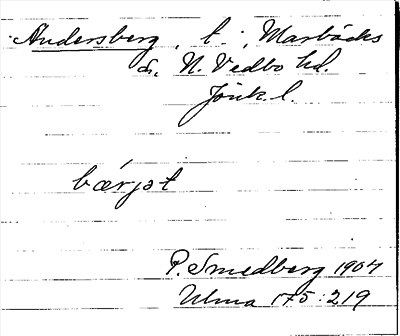 Andersberg, t i Marbäcks
s. N. Vedbo hd.
Jönk. l.
bærjət
P. Smedberg 1907
Ulma 175:219